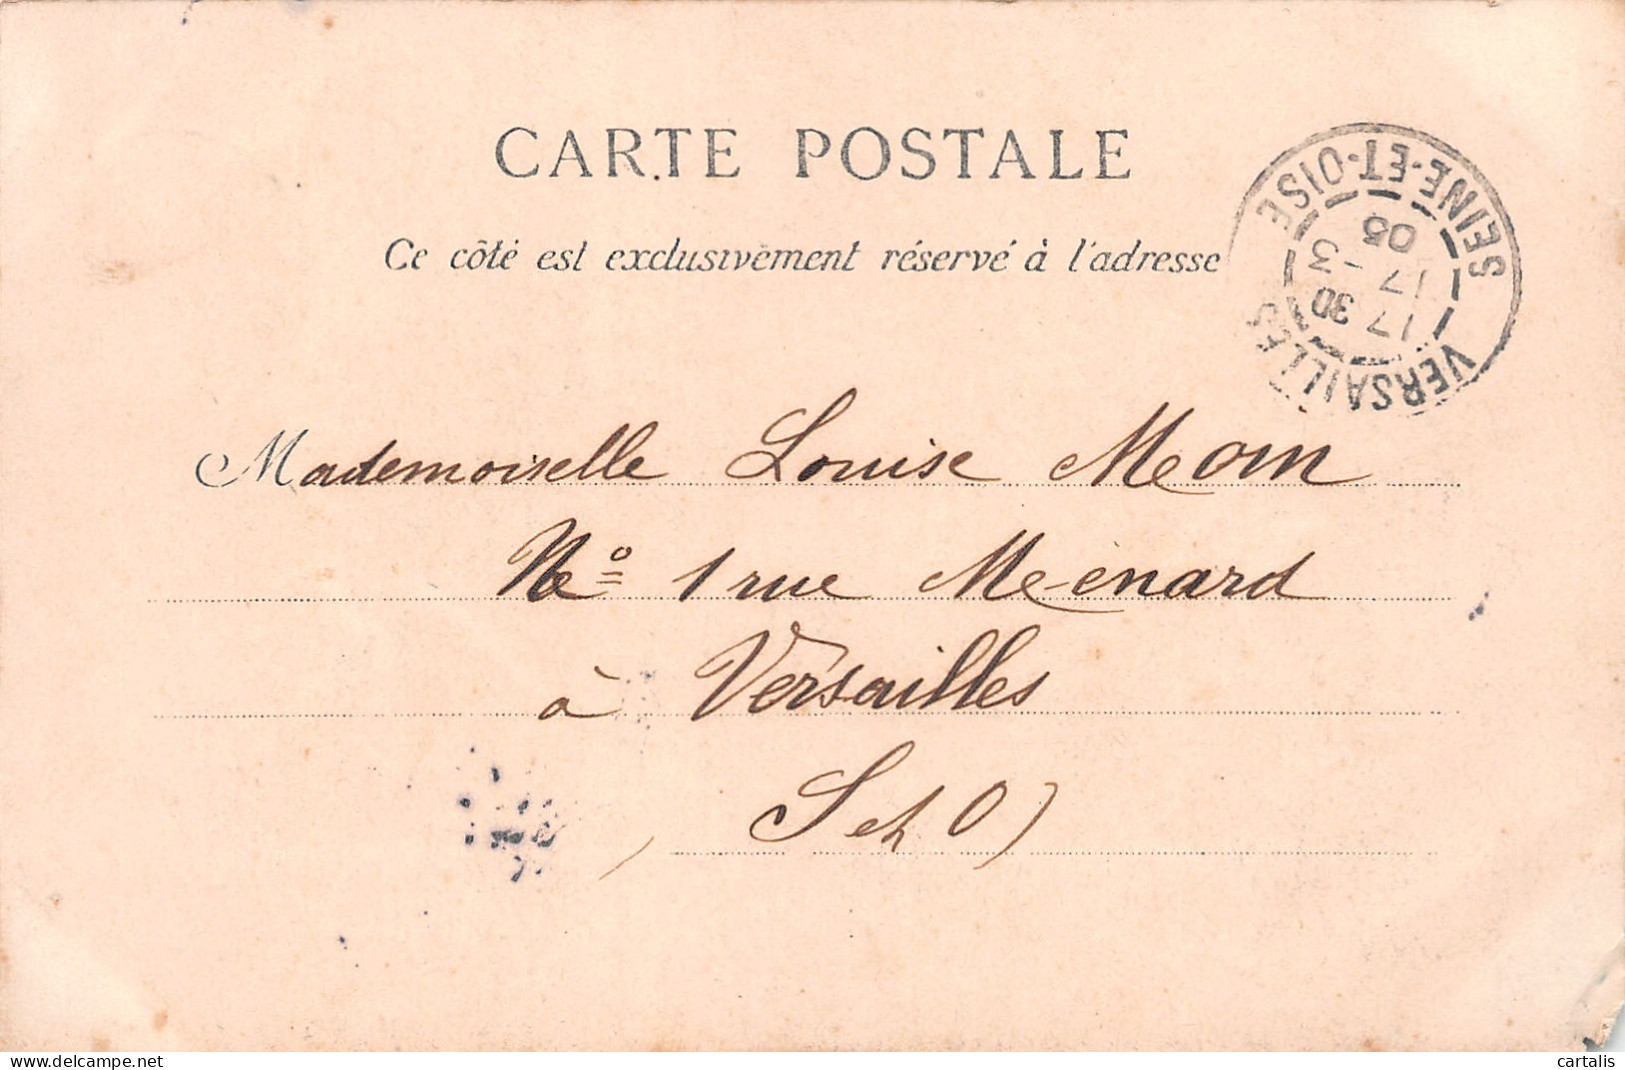 CARTE POSTALE
Ce côté est exclusivement réservé à l'adresse
VERSAILLES
SEINE-ET-OISE
17 30
17 - 3
05
Mademoiselle Louise Mom
No 1 rue Me-enard
à Versailles
S et O)
delcampe.net
cartalis